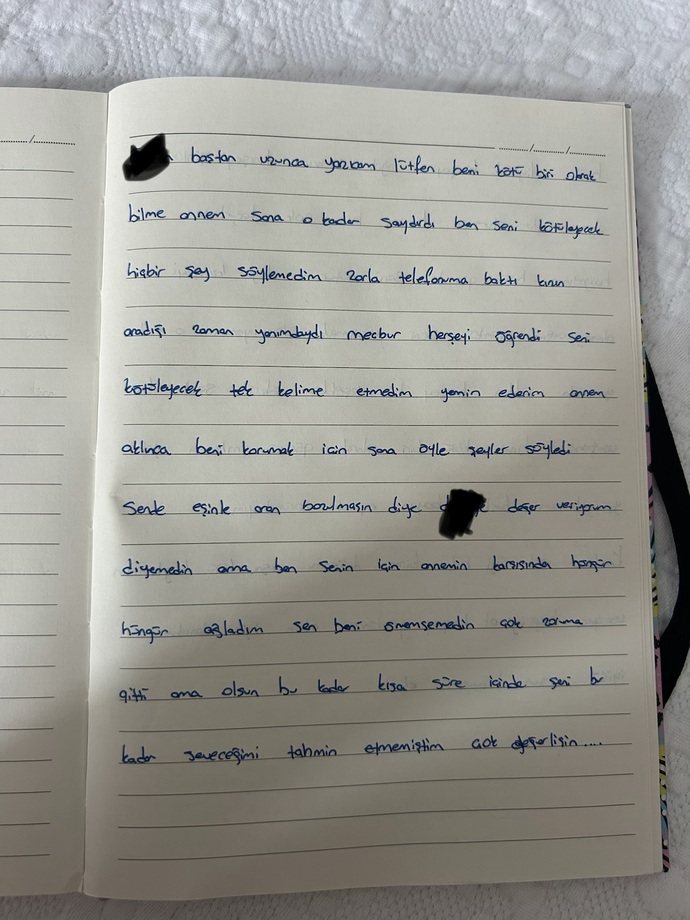 ...../...../.....
...../...../.....
baştan uzunca yazıcam lütfen beni kötü biri olarak
bilme annem sana o kadar saydırdı ben seni kötüleyecek
hiçbir şey söylemedim zorla telefonuma baktı kızın
aradığı zaman yanımdaydı mecbur herşeyi öğrendi seni
kötüleyecek tek kelime etmedim yemin ederim annem
aklınca beni korumak için sana öyle şeyler söyledi
Sende eşinle aran bozulmasın diye değer veriyorum
diyemedin ama ben senin için annemin karşısında hüngür
hüngür ağladım sen beni önemsemedin çok zoruma
gitti ama olsun bu kadar kısa süre içinde seni bu
kadar seveceğimi tahmin etmemiştim çok değerlisin....